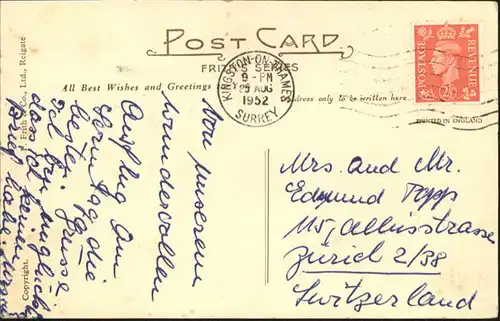 POST CARD
FRITH'S SERIES
All Best Wishes and Greetings
Address only to be written here
KINGSTON-ON-THAMES
9 - PM
25 AUG
1952
SURREY
POSTAGE REVENUE
2½ᴰ
PRINTED IN ENGLAND
F. Frith & Co., Ltd., Reigate
Copyright.
Von unserem
wundervollen
Ausflug am
Sonntag die
besten Grüsse
bin unglückl
dass ich keinen
Brief habe.
Mrs. and Mr.
Edmund Popp
115, Albisstrasse
Zürich 2/38
Switzerland